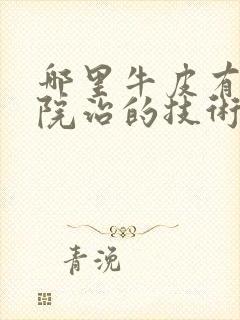 哪里牛皮有
院治的技術
青浼